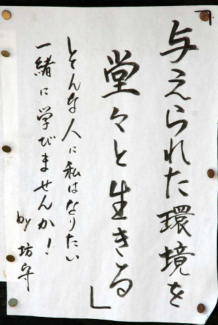 「与えられた環境を
堂々と生きる」
そんな人に私はなりたい
一緒に学びませんか!
by 坊守